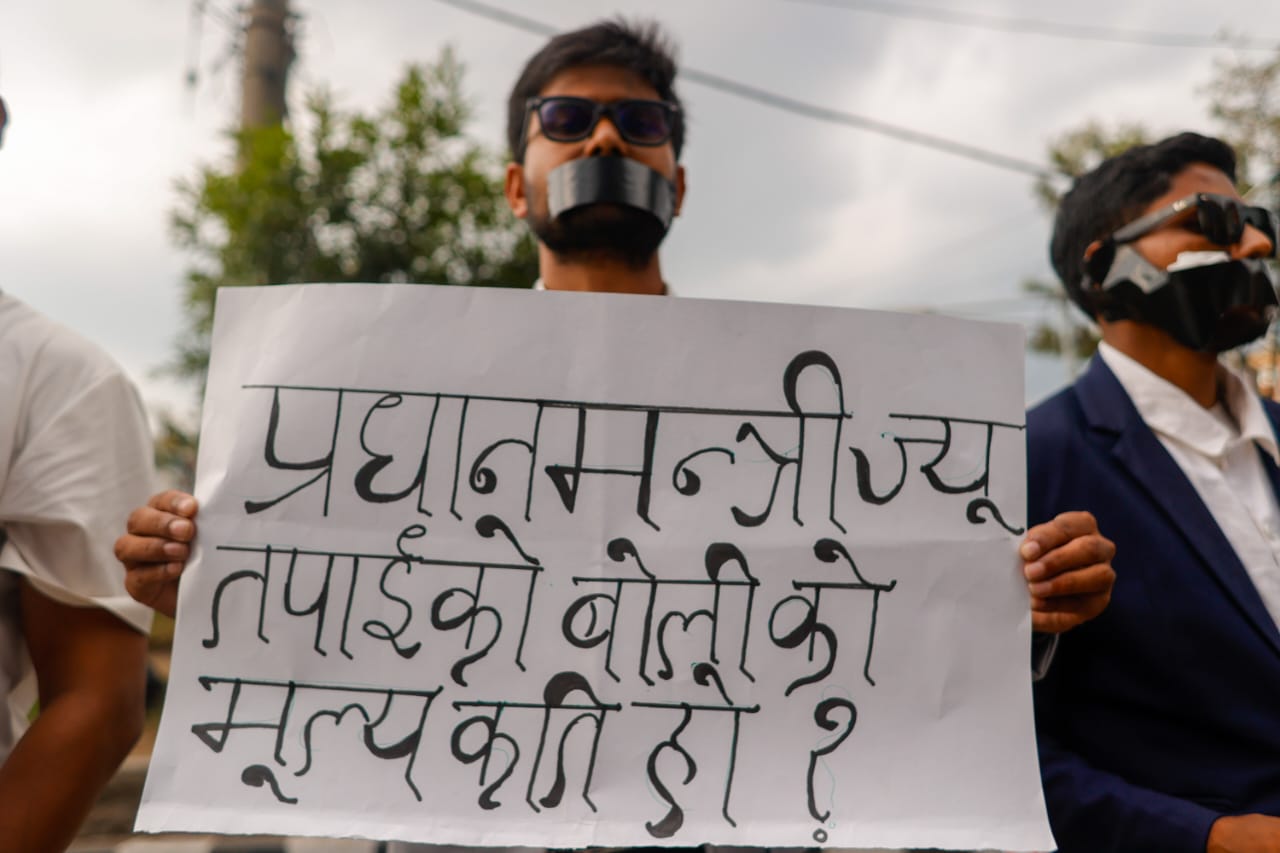 प्रधानमन्त्रीज्यू
तपाईको बोलीको
मूल्य कति हो ?